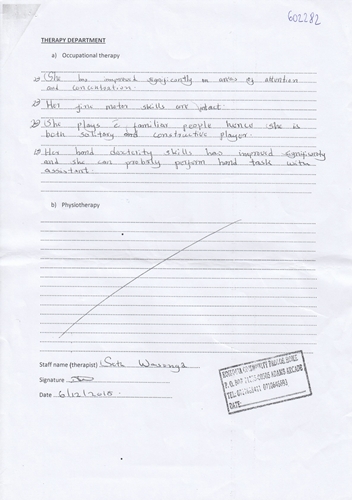 602282
THERAPY DEPARTMENT
a) Occupational therapy
She has improved significantly in areas of attention
and concentration.
Her fine motor skills are intact.
She plays c̄ familiar people hence she is
both solitary and constructive player.
Her hand dexterity skills has improved significantly
and she can probably perform hand task with
assistant.
b) Physiotherapy
Staff name (therapist) Seth Wasonga
Signature
Date 6/12/2018
DATE: